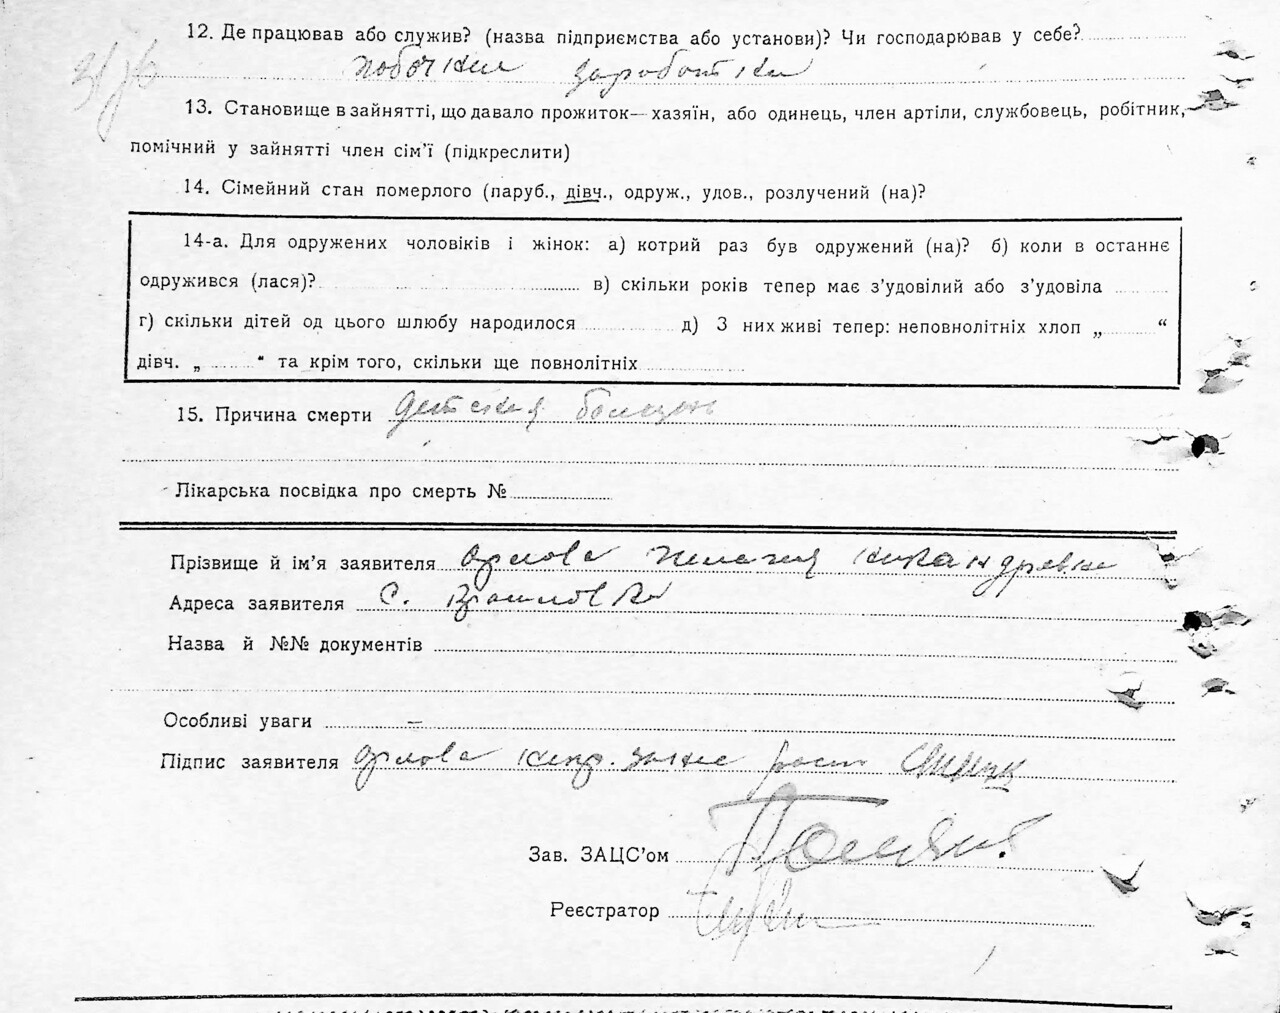 12. Де працював або служив? (назва підприємства або установи)? Чи господарював у себе?
побочкии заработки
13. Становище в зайнятті, що давало прожиток— хазяїн, або одинець, член артілі, службовець, робітник,
помічний у зайнятті член сім’ї (підкреслити)
14. Сімейний стан померлого (паруб., дівч., одруж., удов., розлучений (на)?
14-а. Для одружених чоловіків і жінок: а) котрий раз був одружений (на)? б) коли в останнє
одружився (лася)? в) скільки років тепер має з’удовілий або з’удовіла
г) скільки дітей од цього шлюбу народилося д) З них живі тепер: неповнолітніх хлоп „ “
дівч. „ “ та крім того, скільки ще повнолітніх
15. Причина смерти Детская болезнь
Лікарська посвідка про смерть №
Прізвище й ім’я заявителя Орлова Пелагия Никандревна
Адреса заявителя с.
Назва й №№ документів
Особливі уваги –
Підпис заявителя Орлова
Зав. ЗАЦС’ом
Реєстратор